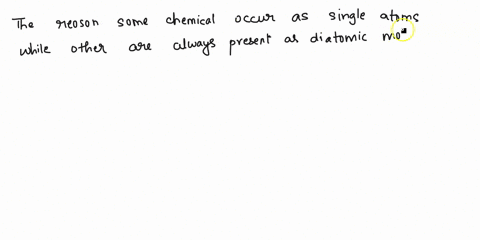 The reoson some chemical occur as single atoms
while other are always present as diatomic mo